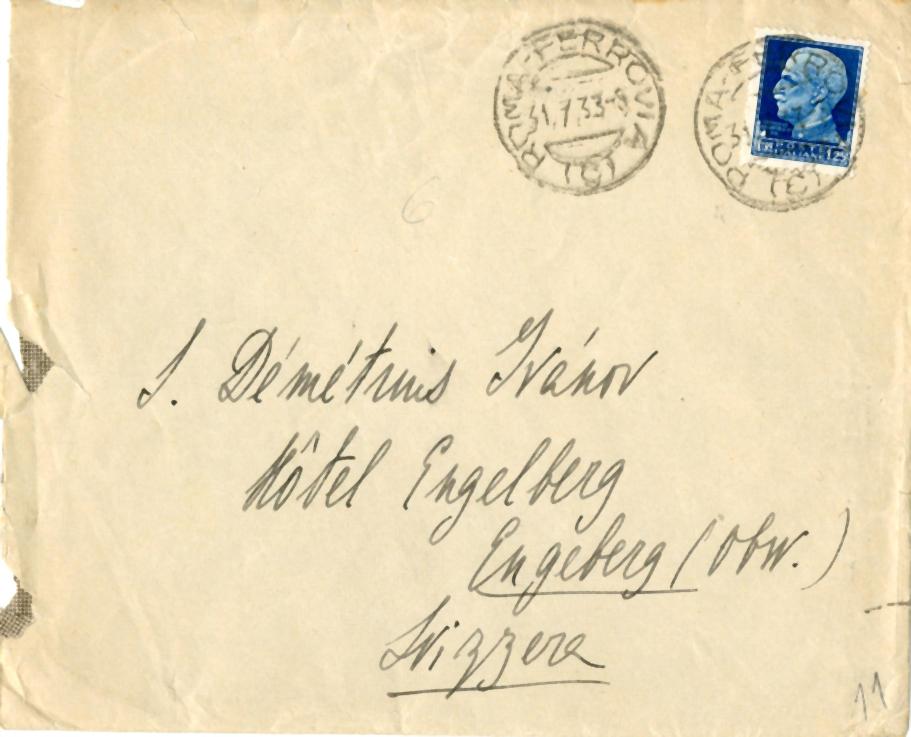 ROMA-FERROVIA (3)
31.7.33-8
ROMA-FERROVIA (3)
6
S. Démétrius Ivánov
Hôtel Engelberg
Engeberg (Obw.)
Svizzera
11